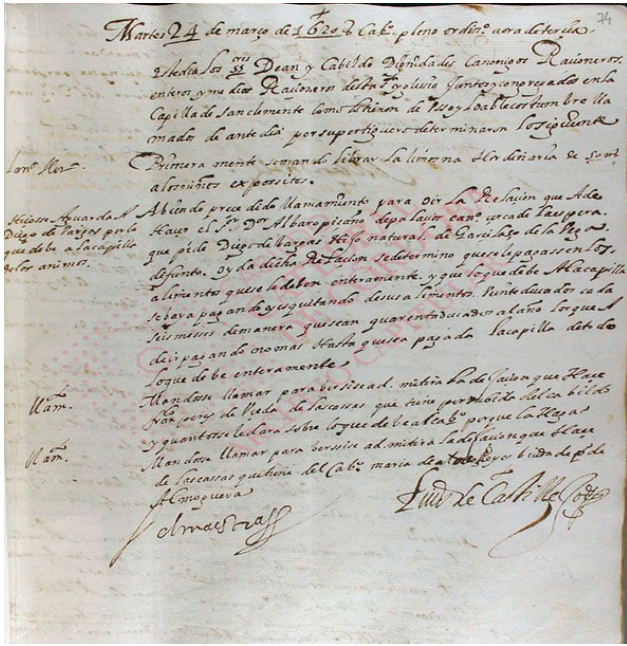 74
Martes 24 de março de 1620 Cabº. pleno ordinº. aora de tercia.
este dia los sres Dean y Cabildo Dignidades Canonigos Raçioneros
enteros y medios Raçioneros desta sta yglesia Juntos y congregados en la
Capilla de san clemente como lo tienen de Usso y loable costumbre lla
mados de ante dia por su pertiguero determinaron lo siguiente
Primera mente se mando librar la limosna Hordinaria de
a los niños expossitos.
Abiendo precedido llamamiento para oir la Relaçion que A de
Haçer el Sr. Dor Albaro piçaño de palaçios canº. çerca de la espera
que pide Diego de Vargas Hijo natural de Garçilaso de la Vega
defunto. oyda dicha Relaçion se determino que se le pagassen los
alimentos que se le deben enteramente. y que lo que debe A la capilla
se baya pagando y esquitando de sus alimentos. Veinte ducados cada
seis messes de manera que sean quarenta ducados al año los que A
de ir pagando no mas Hasta que sea pagada la capilla de todo
lo que debe enteramente
Mandose llamar para ver si se admitira la dejaçion que Haçe
de Ueda de las cassas que tiene por bida del cabildo
y quanto se le dara sobre lo que debe al cabº. porque la Haga
Mandose llamar para ver si se admitira la dejaçion que Haçe
de las cassas que tiene del Cabº. maria de los Reyes biuda de pº. de
Almoguera
Hiçosse Aguarda A
Diego de Vargas por lo
que debe a la capilla
de las animas.
llam.
llam.
el maestra
Luis de Castilla